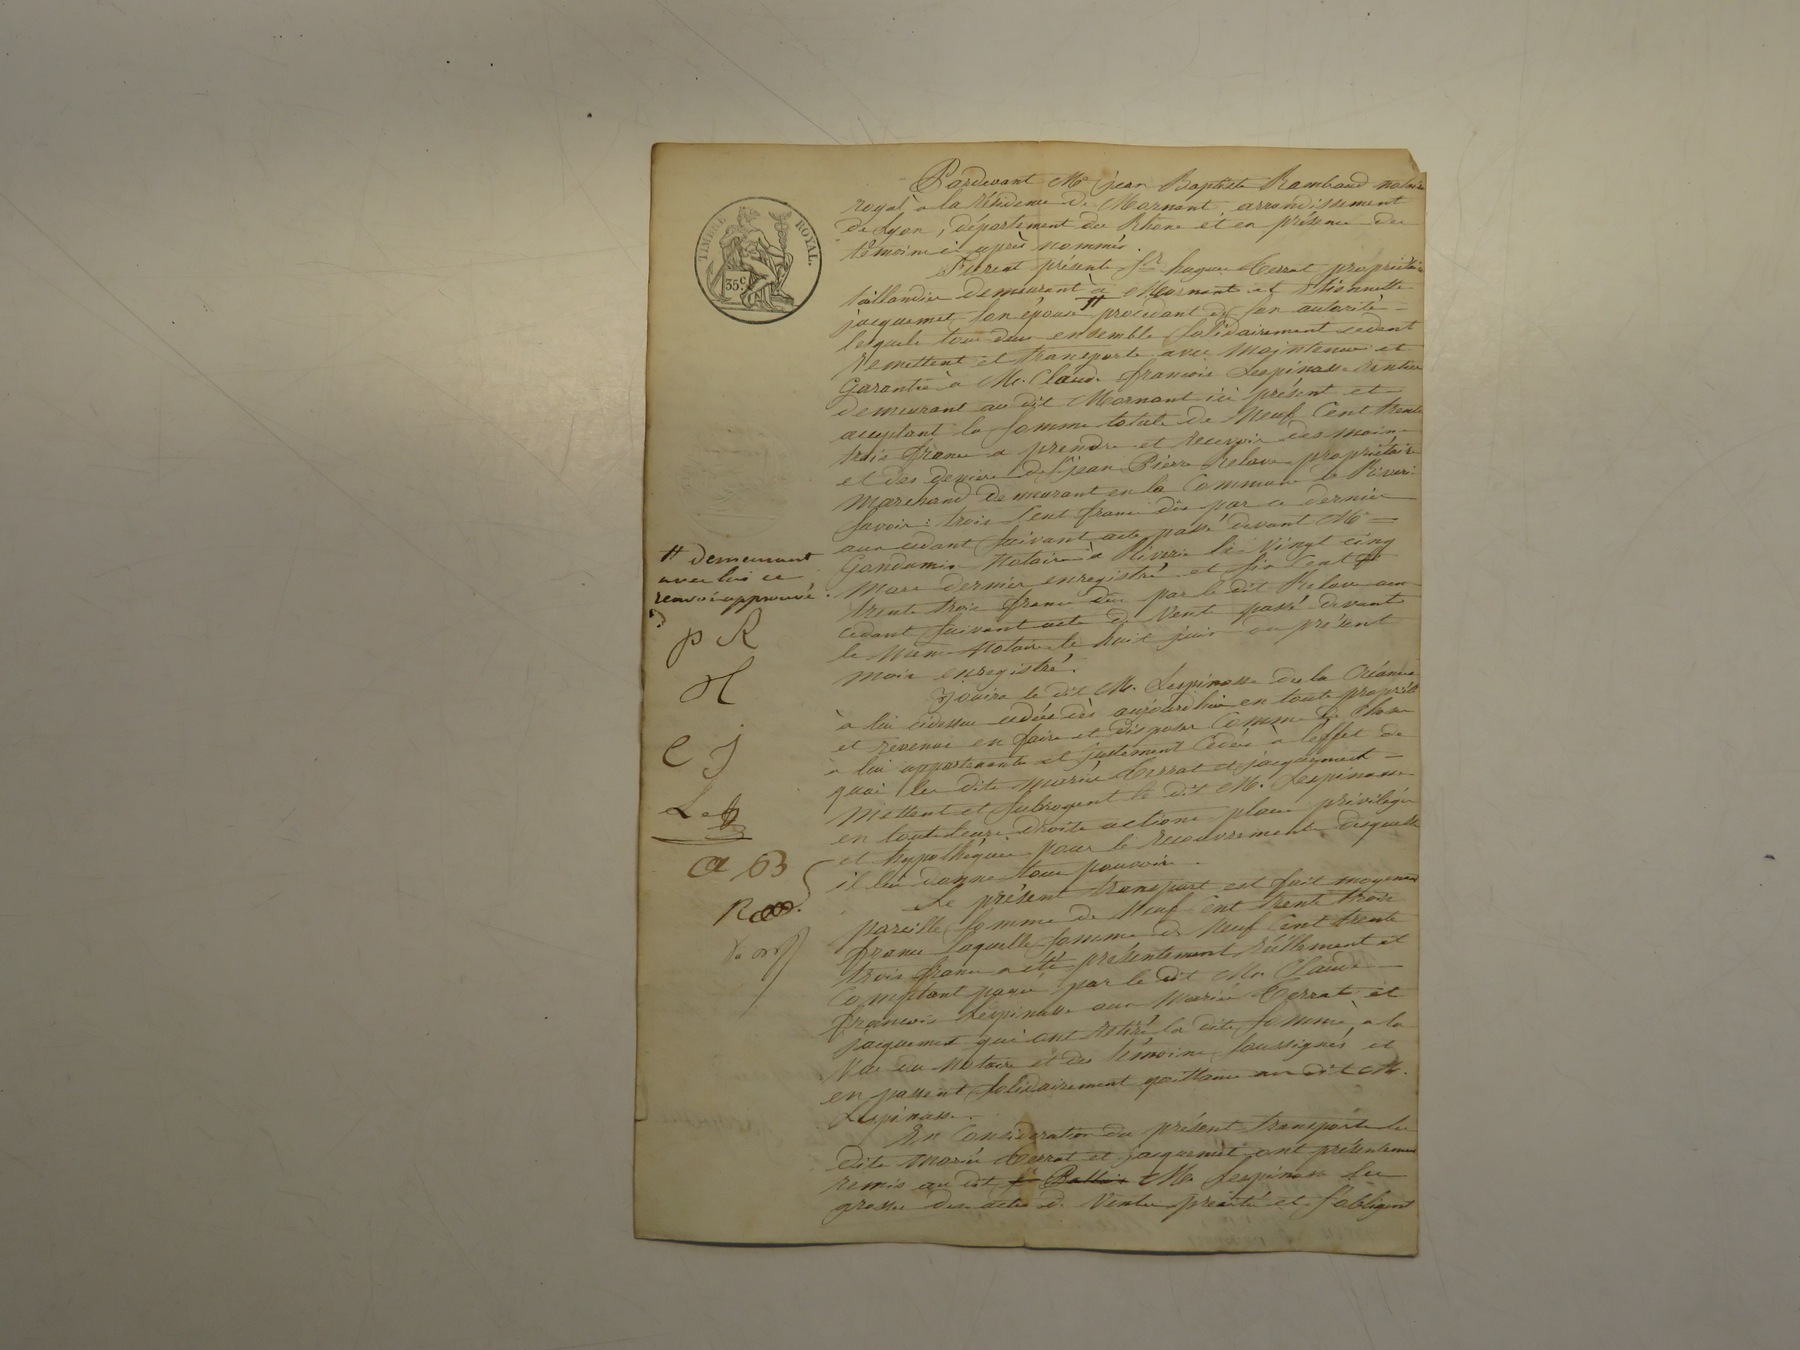 TIMBRE ROYAL.
35 c
Pardevant Me jean Baptiste Rambaud notaire
royal à la résidence de Mornant, arrondissement
de Lyon, département du Rhone et en présence des
témoins ci après nommés.
Furent présents Sr hugues Cerrat propriétaire
taillandier demeurant à Mornant et Etiennette
jacquemet son épouse # procédant de son autorité
lesquels tous deux ensemble solidairement cedent
remettent et transporte avec maintenue et
Garantie à M. Claude françois Lespinasse rentier
demeurant au dit Mornant ici présent et
acceptant la somme totale de Neuf Cent trente
trois francs a prendre et recevoir des mains
et des deniers de Sr jean Pierre Relave propriétaire
Marchand demeurant en la Commune de Riverie
savoir : trois Cent francs dûs par ce dernier
aux cédants suivant acte passé devant Me
Notaire à Riverie le vingt cinq
Mars dernier enregistré et six Cent
trente trois francs dus par le dit Relave aux
cédants suivant acte de vente passé devant
le même Notaire le huit juin du présent
mois enregistré.
# demeurant
avec lui ce
renvoi approuvé.
p R
H
C J
Les
a B
R
Jouira le dit M. Lespinasse de la Créance
à lui cidessus cédée dès aujourdhui en toute propriété
et revenus en faire et disposer Comme de Chose
à lui appartenante et justement Cédée à l'effet de
quoi les dits mariés Cerrat et jacquemet
mettent et subrogent le dit M. Lespinasse
en tout leurs droits actions place privilèges
et hypothèques pour le recouvrement desquels
il lui donne tous pouvoirs.
Le présent transport est fait moyenant
pareille somme de Neuf cent trente trois
francs laquelle somme de Neuf Cent trente
trois francs a été présentement réellement et
Comptant payée par le dit M. Claude
françois Lespinasse aux Mariés Cerrat et
jacquemet qui ont retiré la dite somme, a la
Vue du Notaire et des témoins soussignés et
en passent solidairement quittance au dit M.
Lespinasse.
En Considération du présent transport les
dits mariés Cerrat et jacquemet ont présentement
remis au dit M. Lespinasse les
grosses des actes de Vente précité et s'obligent